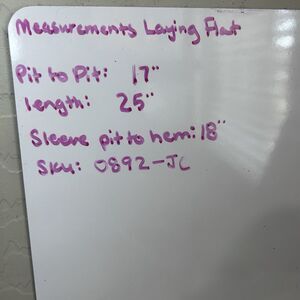 Measurements Laying Flat
Pit to Pit: 17"
length: 25"
Sleeve pit to hem: 18"
Sku: 0892-JC